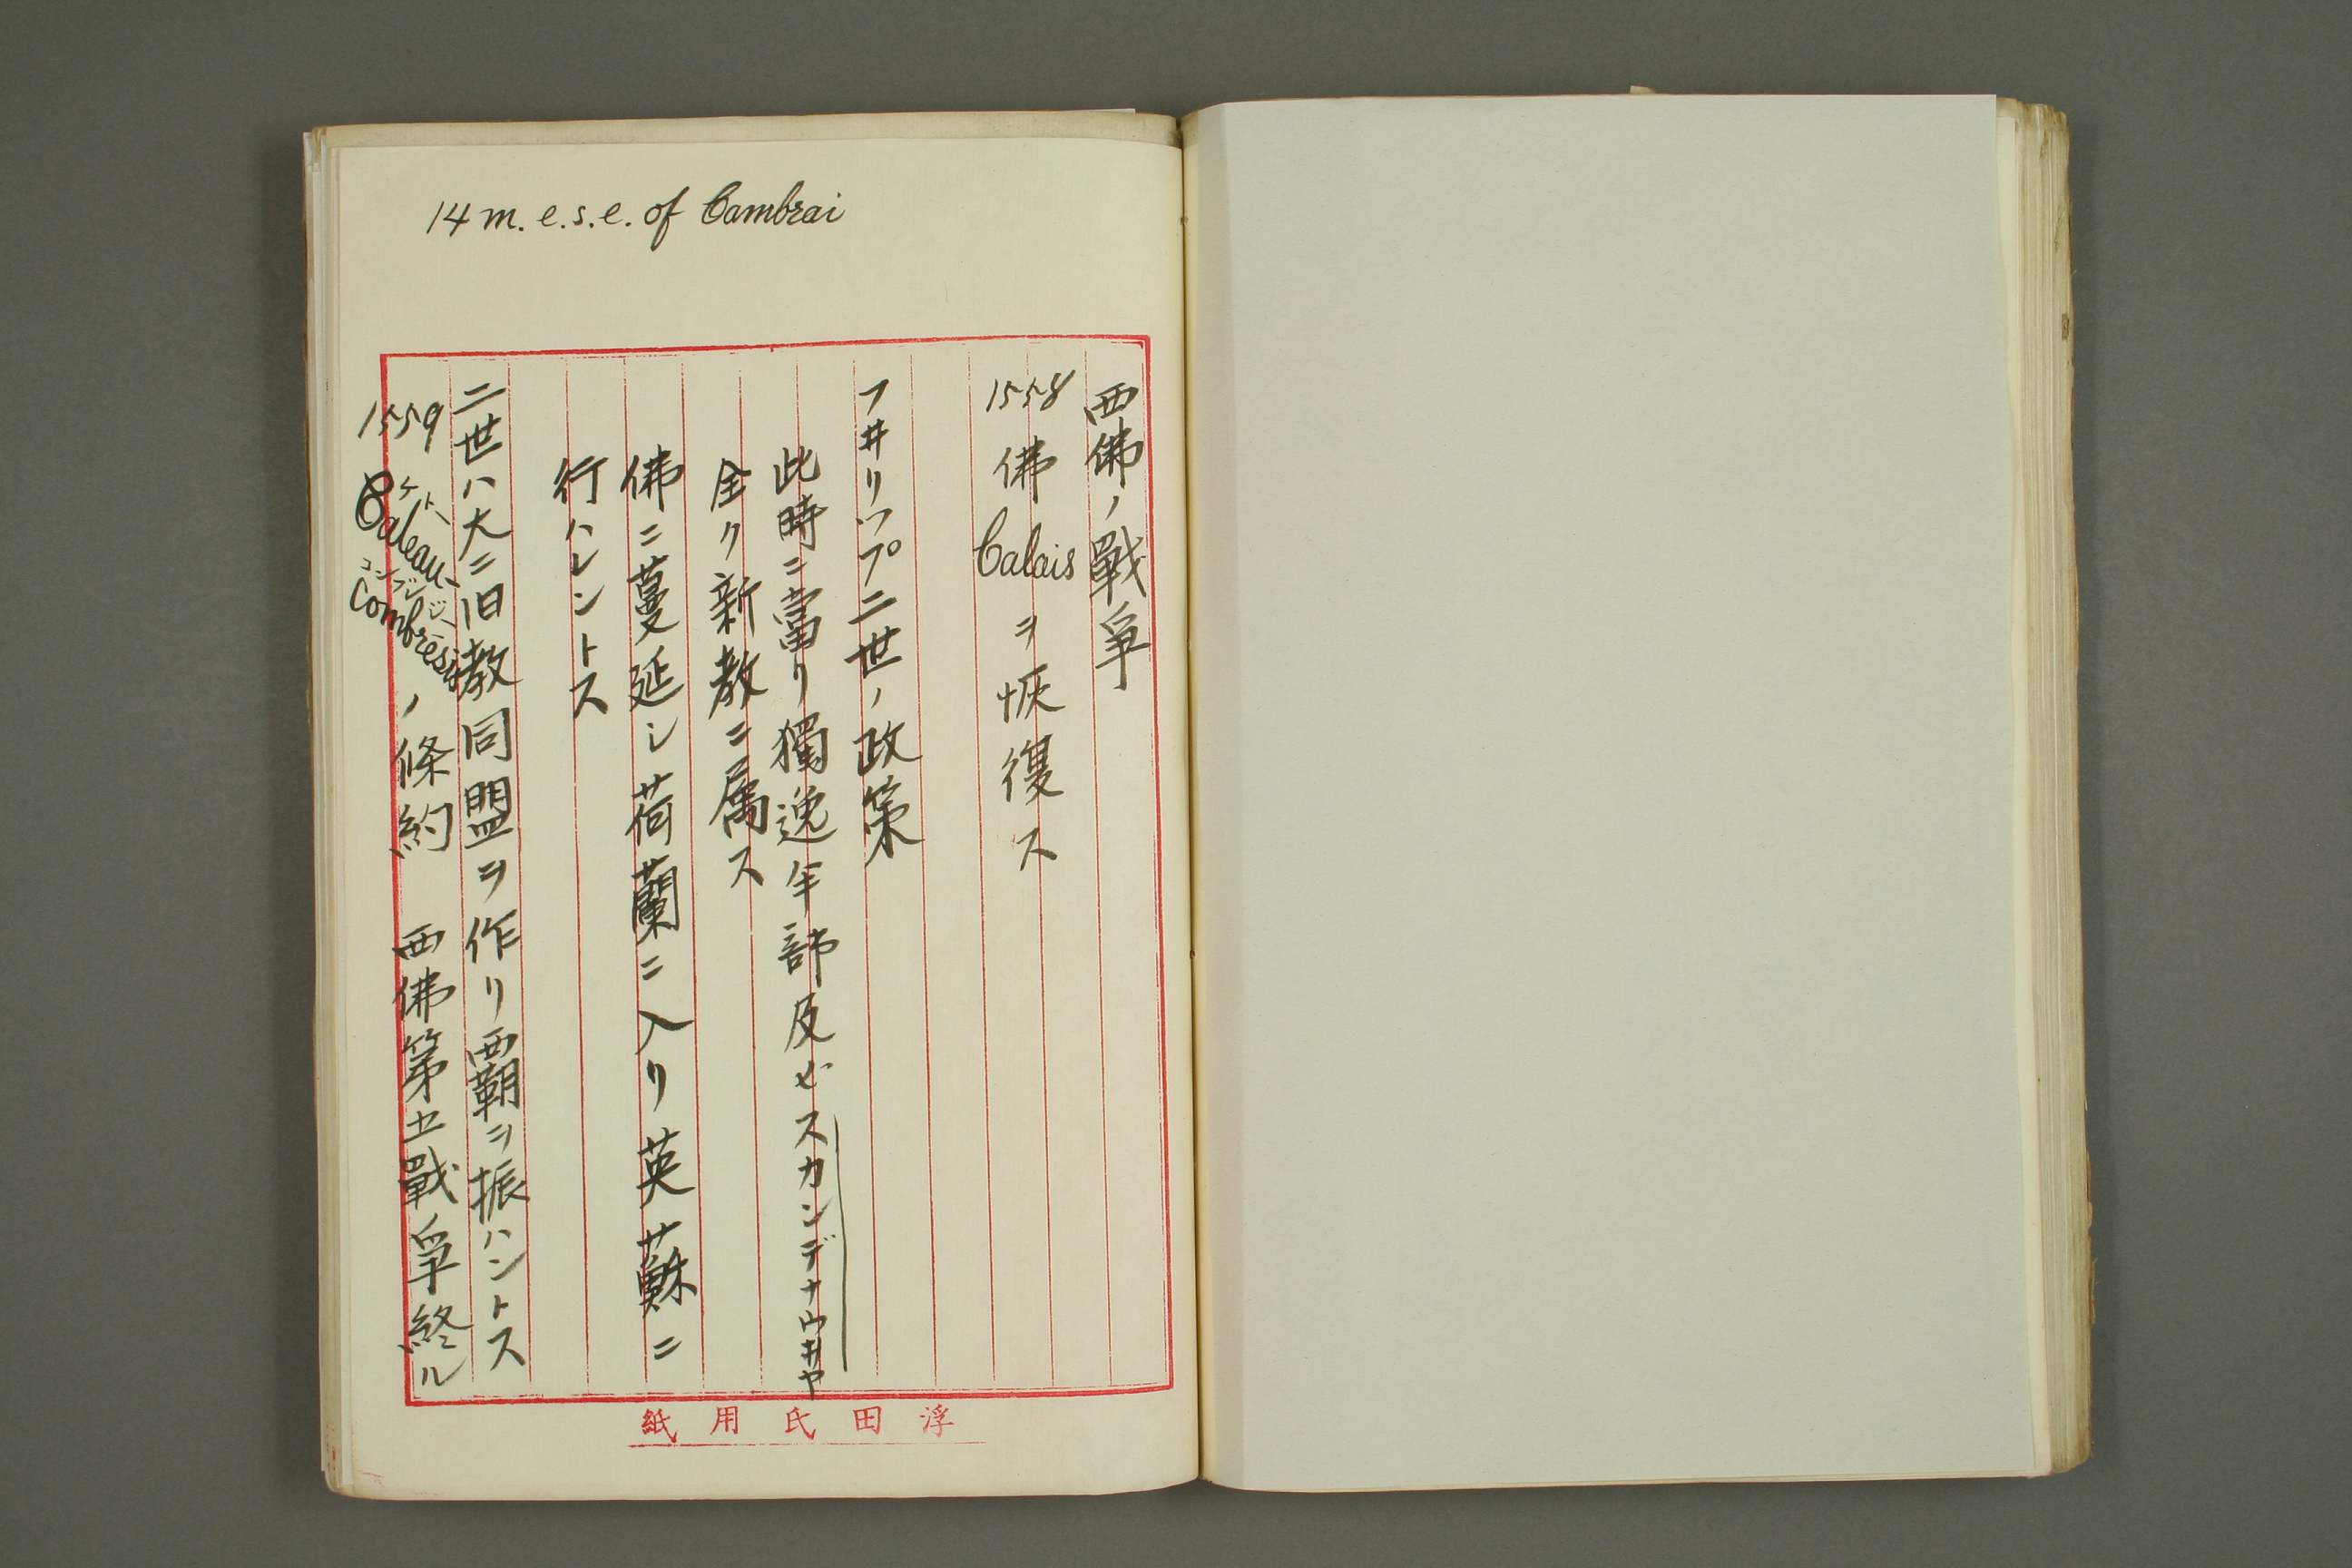 14 m. e.s.e. of Cambrai
西佛ノ戰爭
1558 佛 Calais ヲ恢復ス
フ井リップ二世ノ政策
此時ニ當リ獨逸年部及ヒスカンデナウ井ヤ
全ク新教ニ属ス
佛ニ蔓延シ荷蘭ニ入リ英蘇ニ
行ハレントス
二世ハ大ニ旧教同盟ヲ作リ覇ヲ振ハントス
1559 Cateau-Combrésis ノ條約 西佛第五戰爭終ル
ケトー
コンブレジー
浮田氏用紙